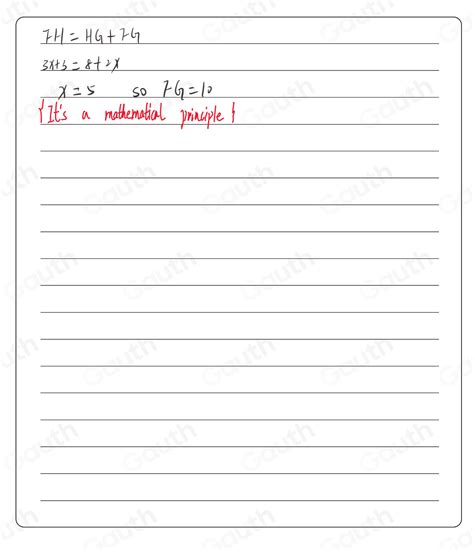 FH = HG + FG
3x+3 = 8+2x
x = 5 so FG = 10
{It's a mathematical principle}
Gauth